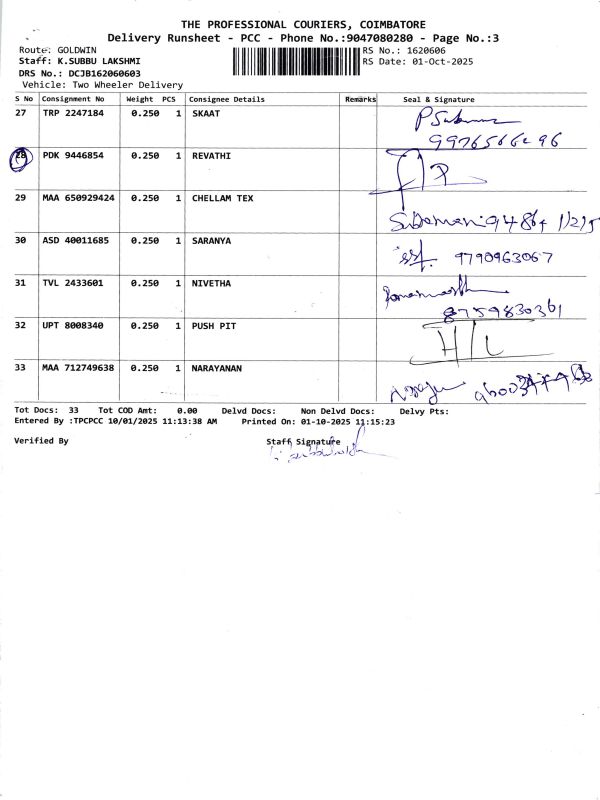 THE PROFESSIONAL COURIERS, COIMBATORE
Delivery Runsheet - PCC - Phone No.:9047080280 - Page No.:3
Route: GOLDWIN RS No.: 1620606
Staff: K.SUBBU LAKSHMI RS Date: 01-Oct-2025
DRS No.: DCJB162060603
Vehicle: Two Wheeler Delivery
S No Consignment No Weight PCS Consignee Details Remarks Seal & Signature
27 TRP 2247184 0.250 1 SKAAT
28 PDK 9446854 0.250 1 REVATHI
29 MAA 650929424 0.250 1 CHELLAM TEX
30 ASD 40011685 0.250 1 SARANYA 9790963067
31 TVL 2433601 0.250 1 NIVETHA
8759830361
32 UPT 8008340 0.250 1 PUSH PIT H/L
33 MAA 712749638 0.250 1 NARAYANAN
Tot Docs: 33 Tot COD Amt: 0.00 Delvd Docs: Non Delvd Docs: Delvy Pts:
Entered By :TPCPCC 10/01/2025 11:13:38 AM Printed On: 01-10-2025 11:15:23
Verified By Staff Signature